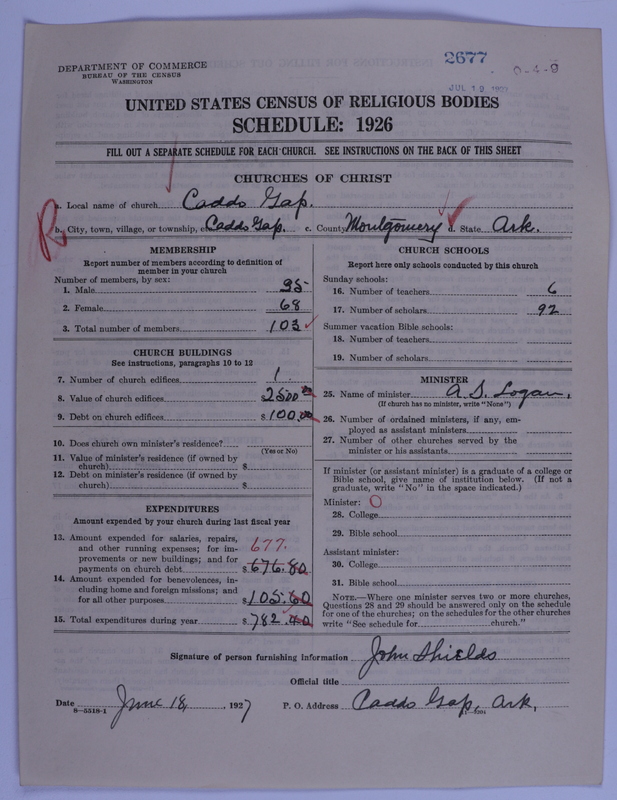 2677
DEPARTMENT OF COMMERCE
BUREAU OF THE CENSUS
WASHINGTON
0-4-9
JUL 19
UNITED STATES CENSUS OF RELIGIOUS BODIES
SCHEDULE: 1926
FILL OUT A SEPARATE SCHEDULE FOR EACH CHURCH. SEE INSTRUCTIONS ON THE BACK OF THIS SHEET
CHURCHES OF CHRIST
a. Local name of church Caddo Gap.
R
b. City, town, village, or township, etc. Caddo Gap. c. County Montgomery d. State Ark.
MEMBERSHIP
Report number of members according to definition of
member in your church
Number of members, by sex:
1. Male 35
2. Female 68
3. Total number of members 103
CHURCH BUILDINGS
See instructions, paragraphs 10 to 12
7. Number of church edifices 1
8. Value of church edifices $2500.00
9. Debt on church edifices $100.00
10. Does church own minister's residence?
(Yes or No)
11. Value of minister's residence (if owned by
church) $
12. Debt on minister's residence (if owned by
church) $
EXPENDITURES
Amount expended by your church during last fiscal year
13. Amount expended for salaries, repairs,
and other running expenses; for im-
provements or new buildings; and for
payments on church debt $676.80
677.
14. Amount expended for benevolences, in-
cluding home and foreign missions; and
for all other purposes $105.60
15. Total expenditures during year $782.40
CHURCH SCHOOLS
Report here only schools conducted by this church
Sunday schools:
16. Number of teachers 6
17. Number of scholars 92
Summer vacation Bible schools:
18. Number of teachers
19. Number of scholars
MINISTER
25. Name of minister A. S. Logan,
(If church has no minister, write "None")
26. Number of ordained ministers, if any, em-
ployed as assistant ministers
27. Number of other churches served by the
minister or his assistants
If minister (or assistant minister) is a graduate of a college or
Bible school, give name of institution below. (If not a
graduate, write "No" in the space indicated.)
Minister: O
28. College
29. Bible school
Assistant minister:
30. College
31. Bible school
NOTE.—Where one minister serves two or more churches,
Questions 28 and 29 should be answered only on the schedule
for one of the churches; on the schedules for the other churches
write "See schedule for church."
Signature of person furnishing information John Shields
Official title
Date June 18, 1927 P. O. Address Caddo Gap, Ark,
8-5518-1